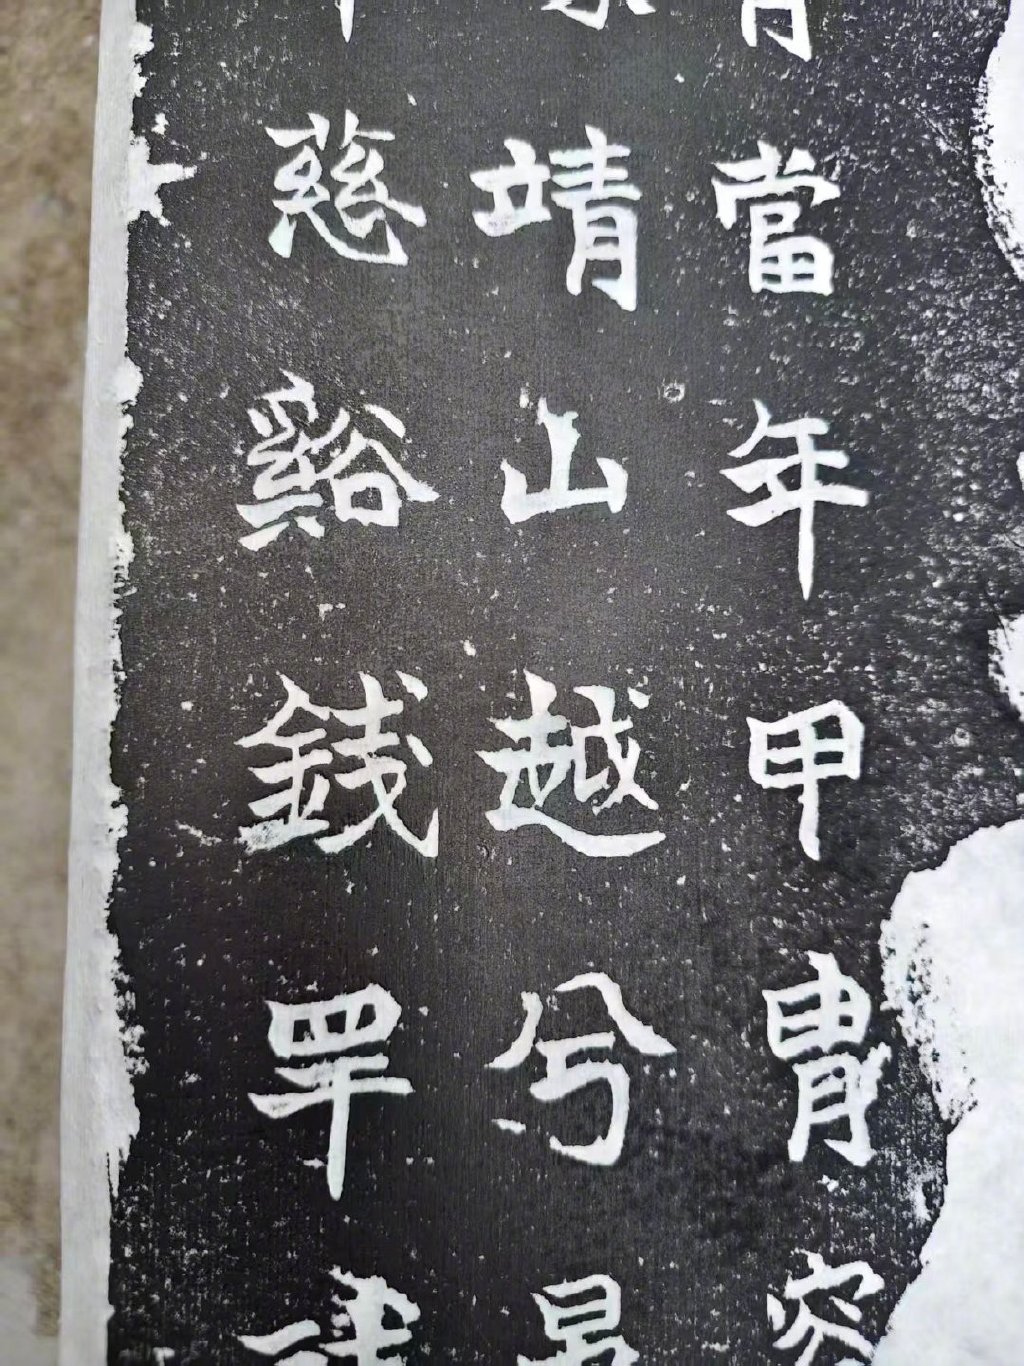 當年甲冑
靖山越兮
慈谿錢罕